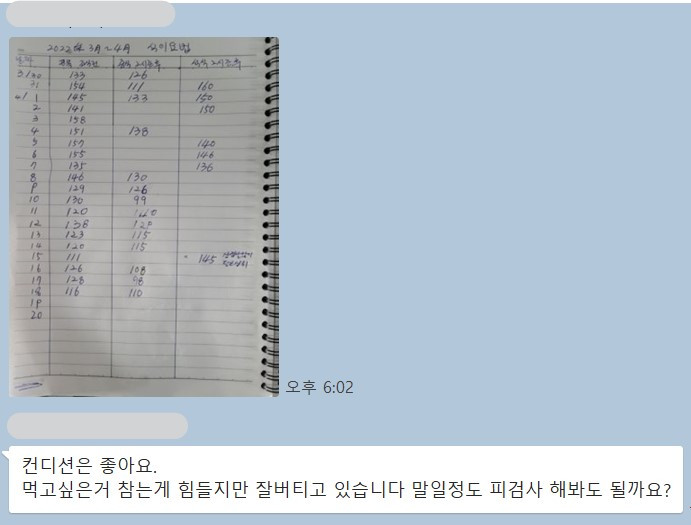 2022년 3月~4月 식이요법
날짜 공복 식2시간후
3/30 133 126
31 154 111 160
4/1 145 133 150
2 141 150
3 158
4 151 138
5 157 140
6 155 146
7 135 136
8 146 130
9 129 126
10 130 99
11 120
12 138 120
13 123 115
14 120 115
15 111 145
16 126 108
17 128 98
18 116 110
19
20
오후 6:02
컨디션은 좋아요.
먹고싶은거 참는게 힘들지만 잘버티고 있습니다 말일정도 피검사 해봐도 될까요?